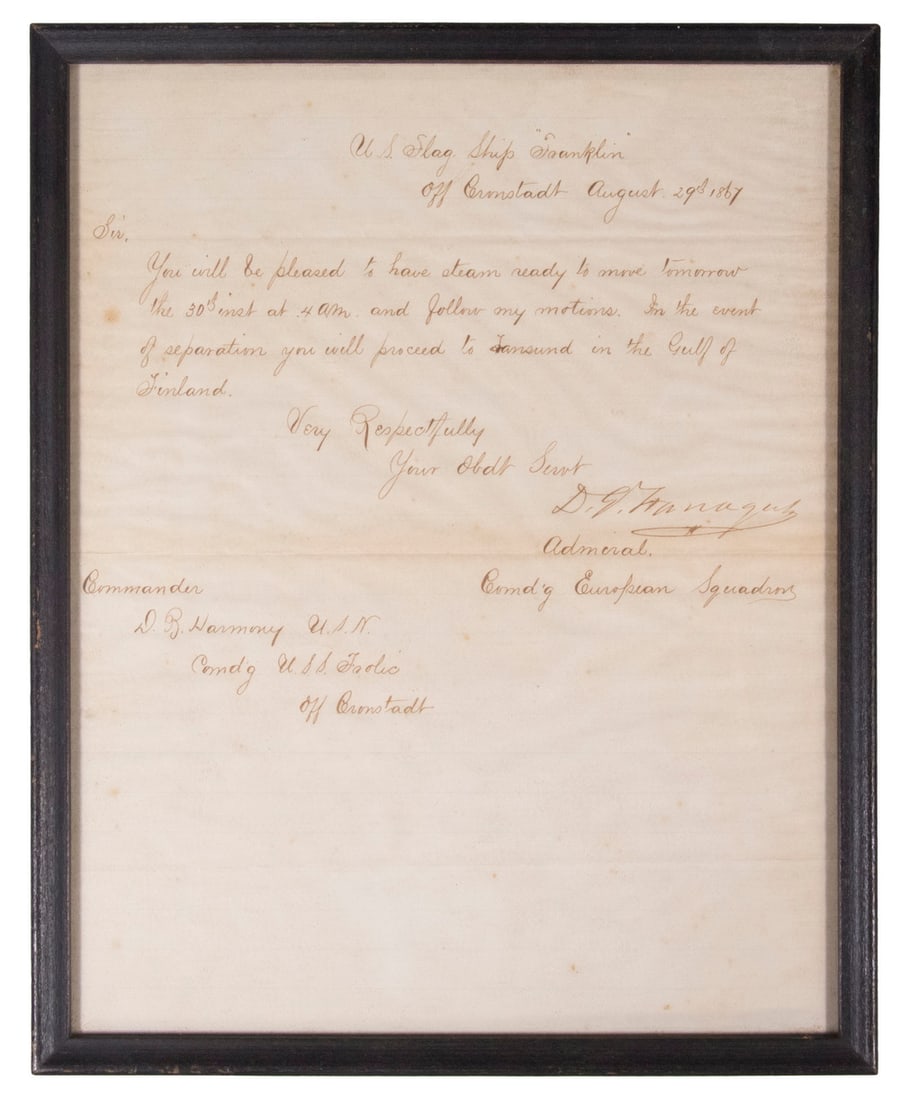 U.S. Flag Ship "Franklin"
Off Cronstadt August 29th 1867
Sir,
You will be pleased to have steam ready to move tomorrow
the 30th inst at 4 am. and follow my motions. In the event
of separation you will proceed to Transund in the Gulf of
Finland.
Very Respectfully
Your Obdt Servt
D. G. Farragut
Admiral.
Comd'g European Squadron
Commander
D. B. Harmony U.S.N.
Comd'g U.S.S. Frolic
Off Cronstadt